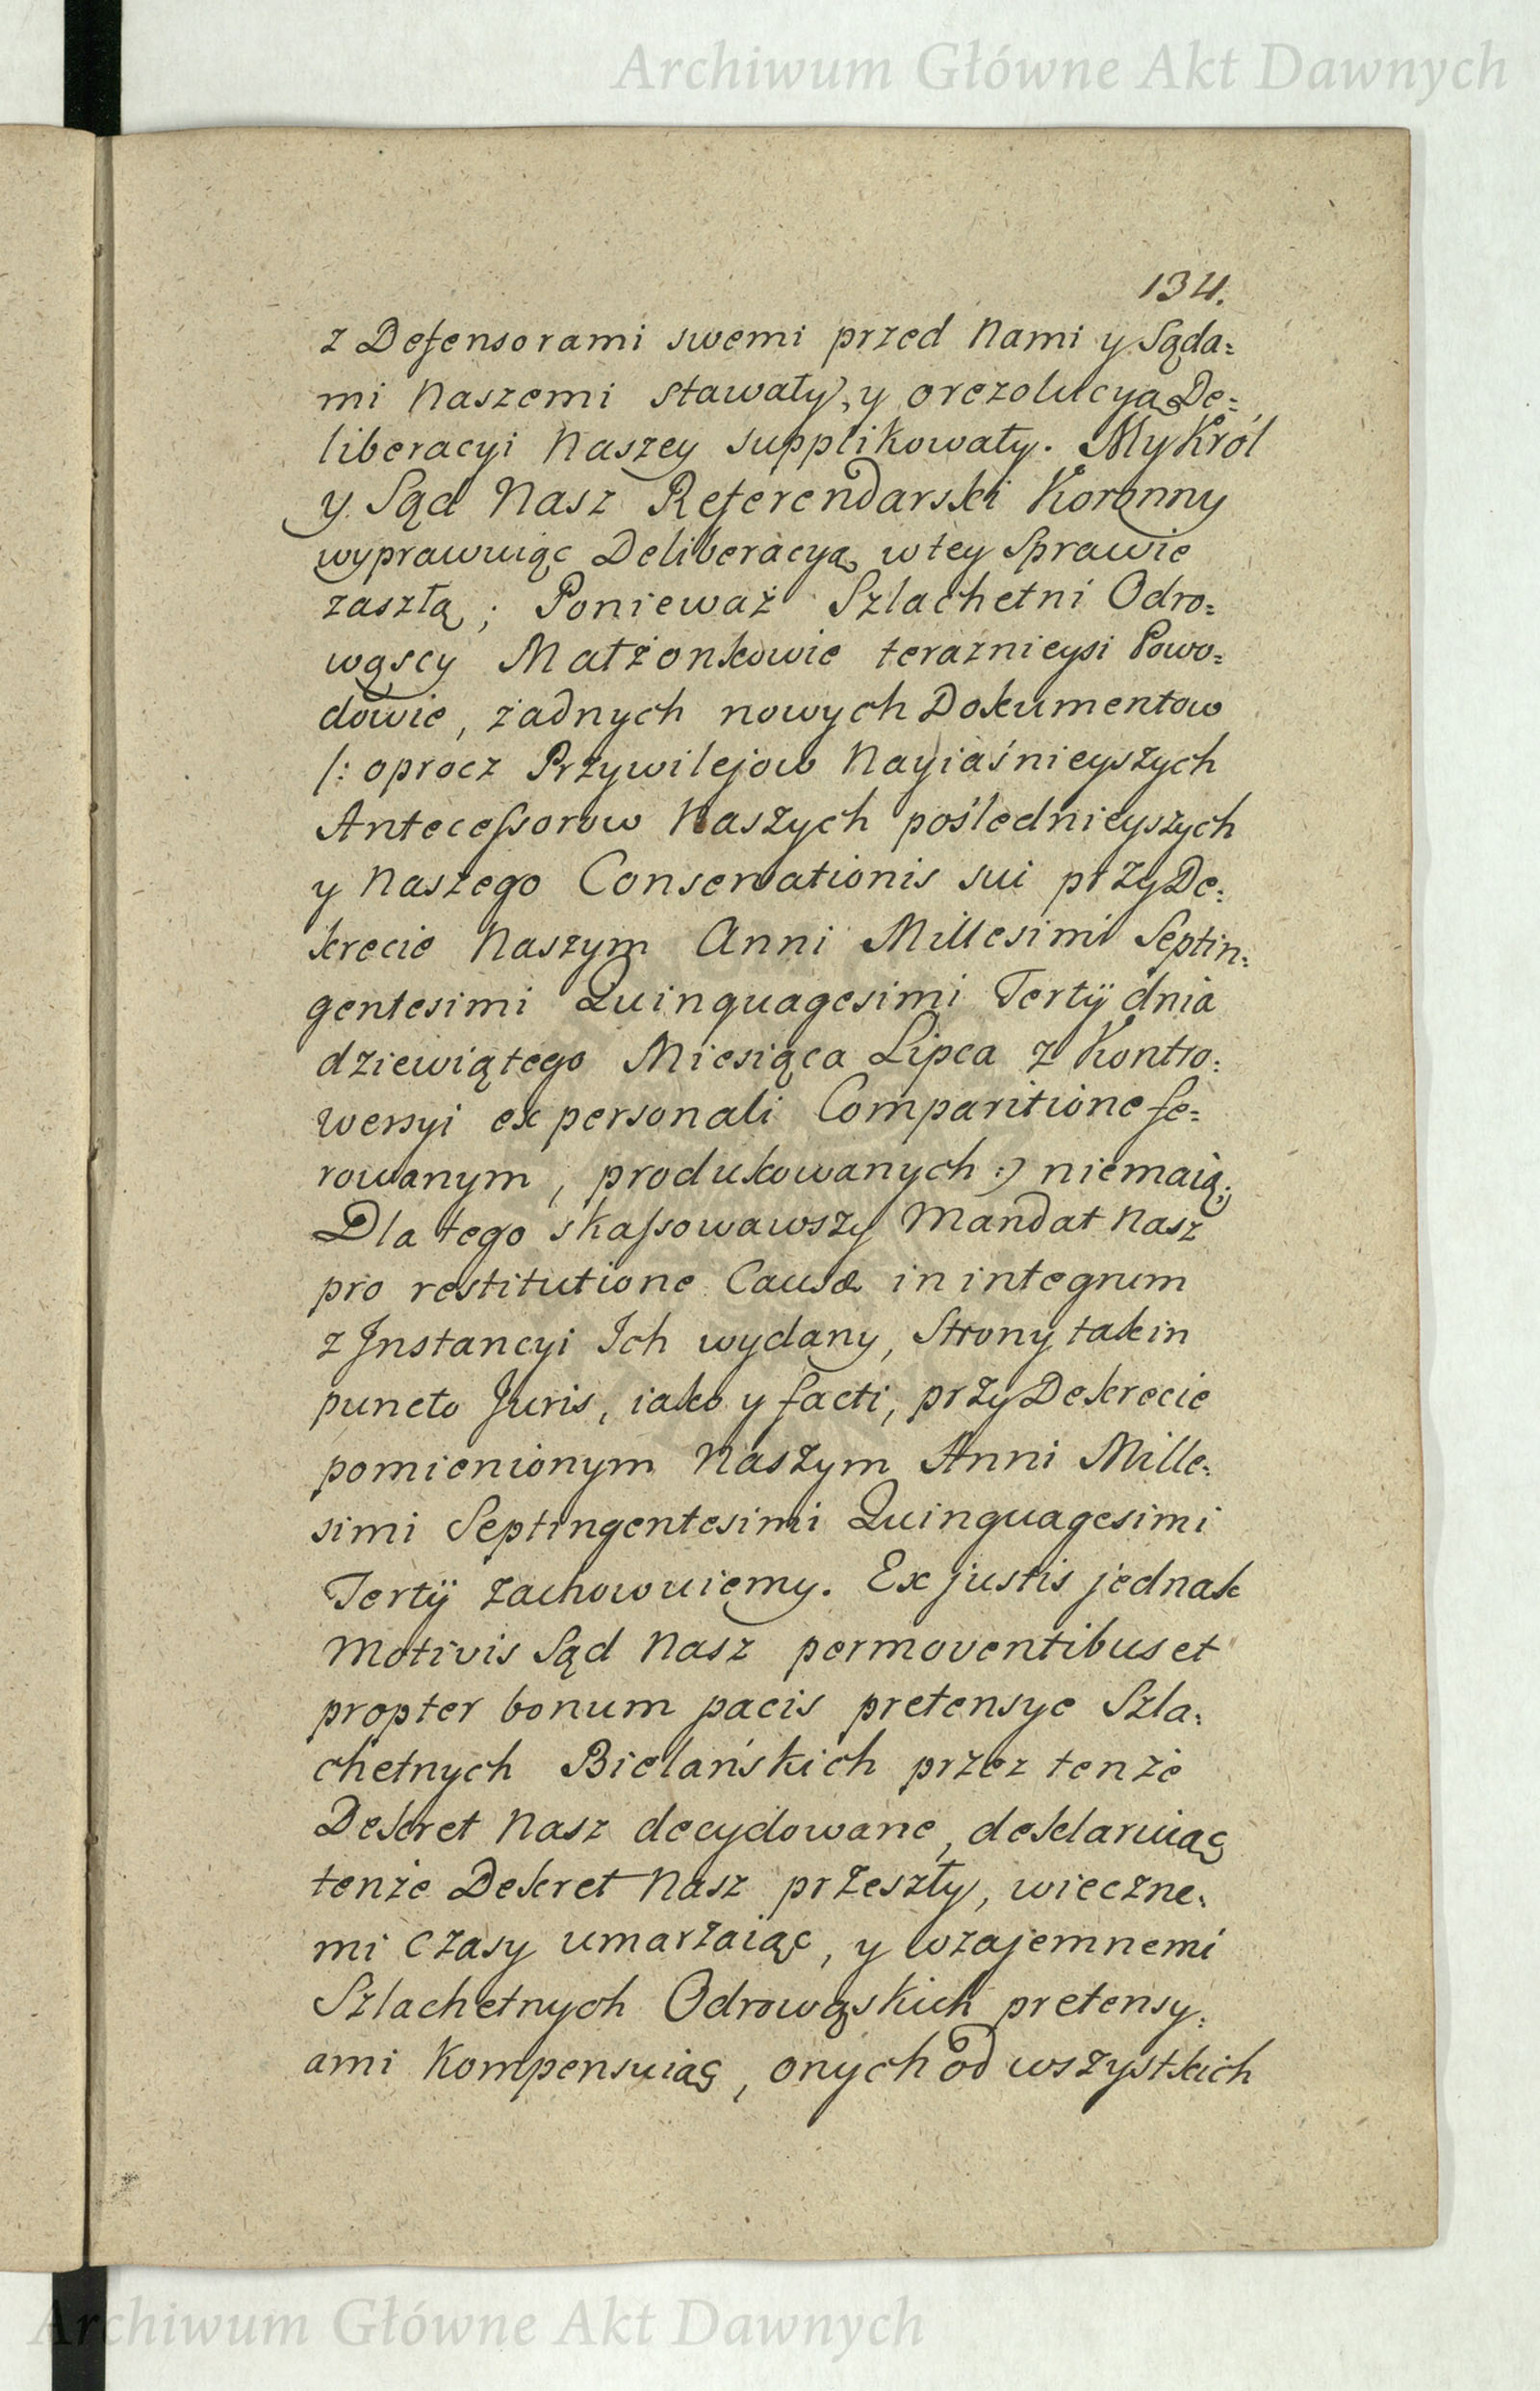 Archiwum Główne Akt Dawnych
134.
z Defensorami swemi przed Nami y Sąda=
mi Naszemi stawały, y orezolucyą De=
liberacyi Naszey supplikowały. My Król
y Sąd Nasz Referendarski Koronny
wyprawuiąc Deliberacyą wtey Sprawie
zaszłą; Ponieważ Szlachetni Odro=
wąscy Małżonkowie teraznieysi Powo=
dowie, żadnych nowych Dokumentow
/: oprocz Przywilejow Nayiaśnieyszych
Antecessorow Naszych poślednieyszych
y Naszego Conservationis sui przy De=
krecie Naszym Anni Millesimi Septin=
gentesimi Quinquagesimi Tertÿ dnia
dziewiątego Miesiąca Lipca z Kontro=
wersyi ex personali Comparitione fe=
rowanym, produkowanych :) niemaią;
Dla tego skassowawszy Mandat Nasz
pro restitutione Causæ in integrum
z Jnstancyi Ich wydany, Strony tak in
puncto Juris, iako y facti, przy Dekrecie
pomienionym Naszym Anni Mille=
simi Septingentesimi Quinquagesimi
Tertÿ zachowuiemy. Ex justis jednak
Motivis Sąd Nasz permoventibus et
propter bonum pacis pretensye Szla=
chetnych Bielańskich przez tenże
Dekret Nasz decydowane, deklaruiąc
tenże Dekret Nasz przeszły, wieczne=
mi czasy umarzaiąc, y wzajemnemi
Szlachetnych Odrowąskich pretensy=
ami Kompensuiąc, onych od wszystkich
Archiwum Główne Akt Dawnych